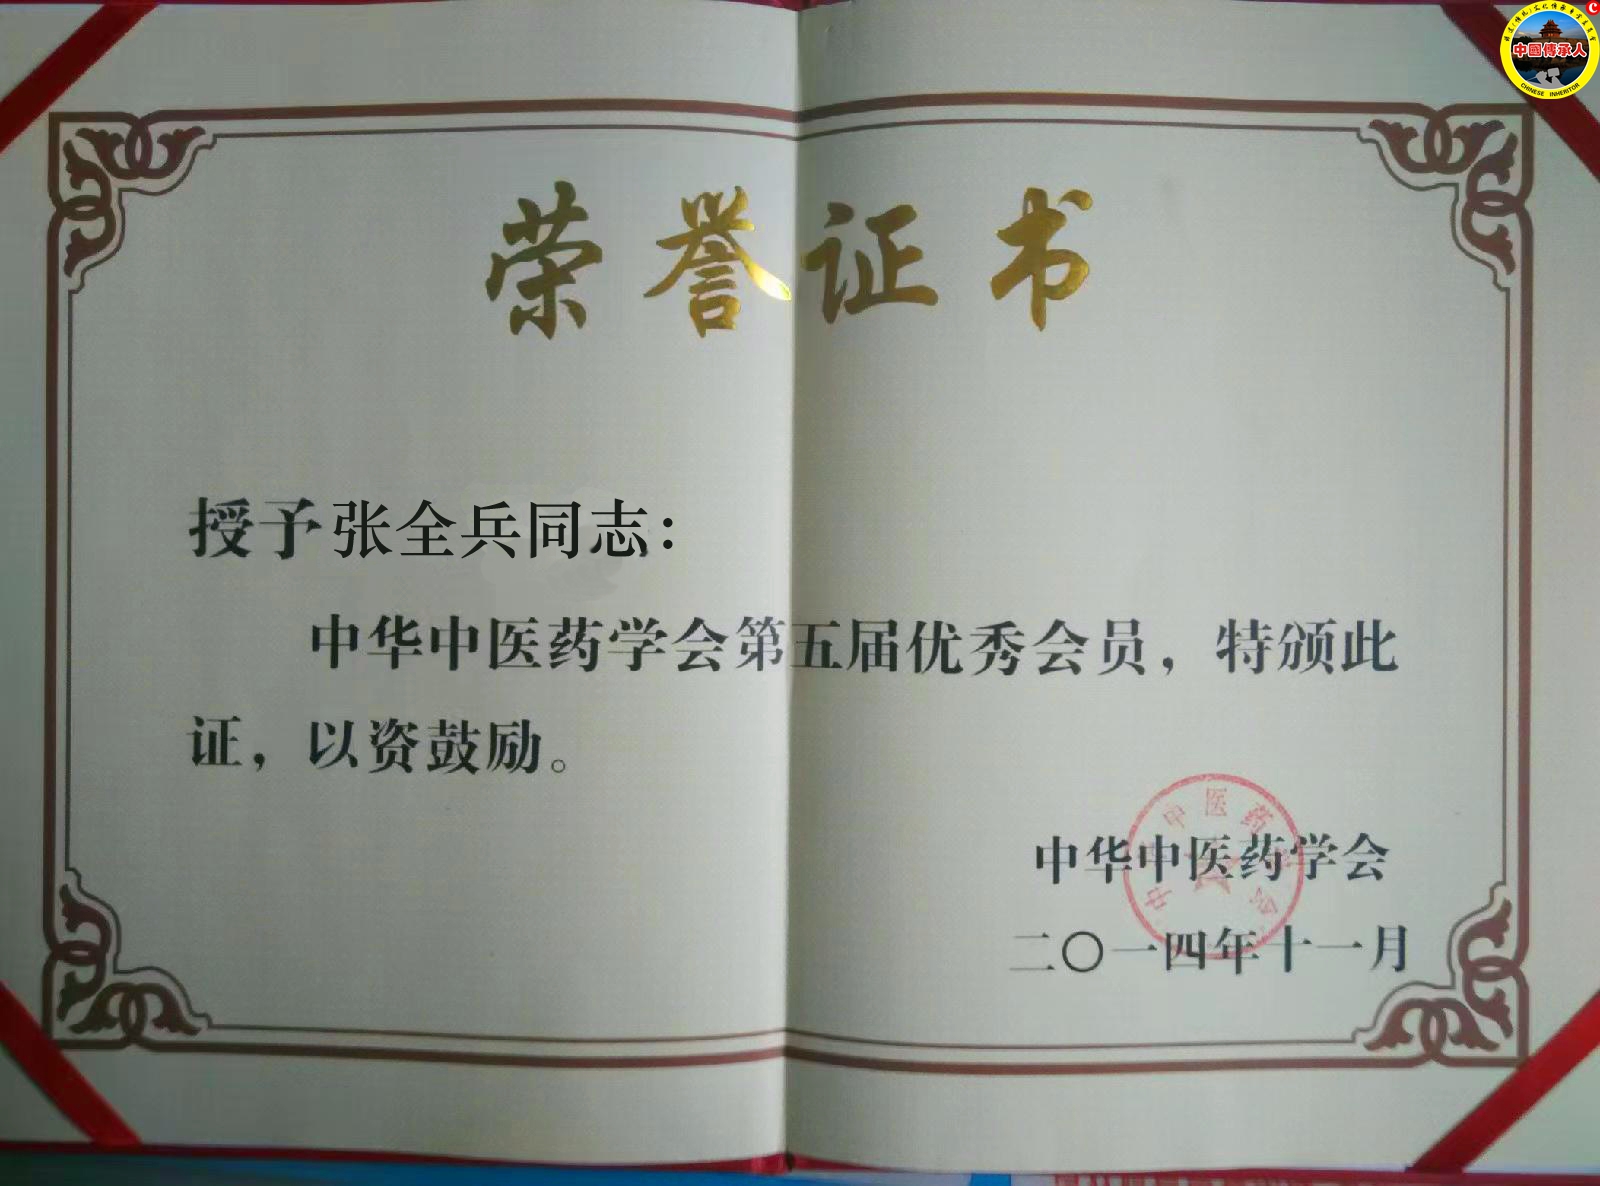 中國傳承人
CHINESE INHERITOR
荣誉证书
授予张全兵同志：
中华中医药学会第五届优秀会员，特颁此
证，以资鼓励。
中华中医药学会
二〇一四年十一月